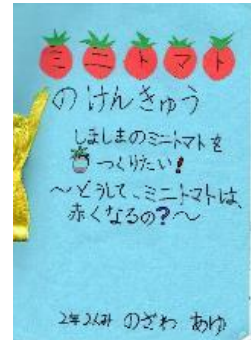 ミニトマト
のけんきゅう
しましまのミニトマトを
つくりたい!
〜どうして、ミニトマトは、
赤くなるの?〜
2年2くみ のざわ あゆ